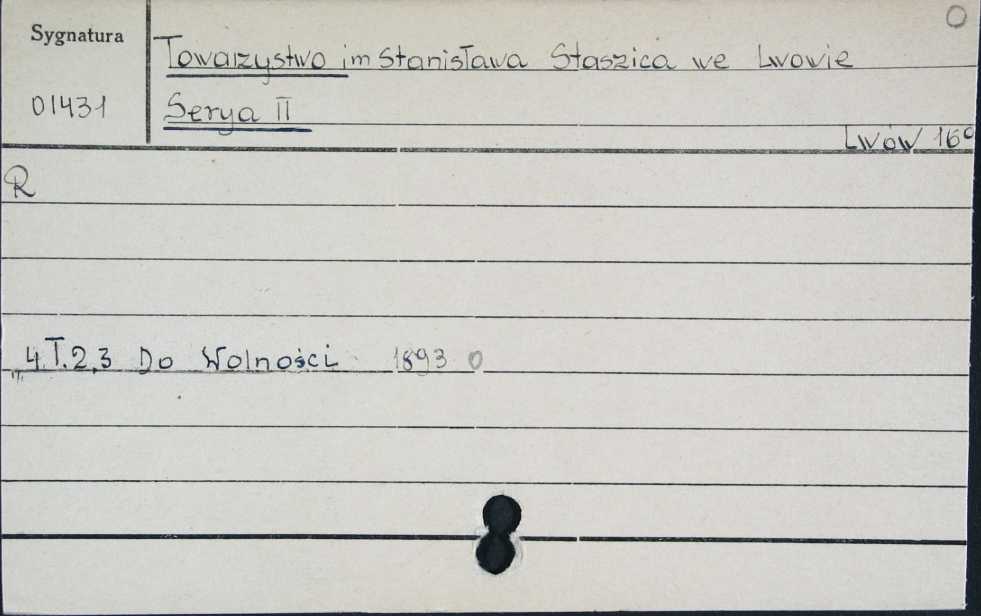 O
Sygnatura
Towarzystwo im Stanisława Staszica we Lwowie
01431
Serya II
Lwów 16°
R
4.T.2,3 Do Wolności 1893 0